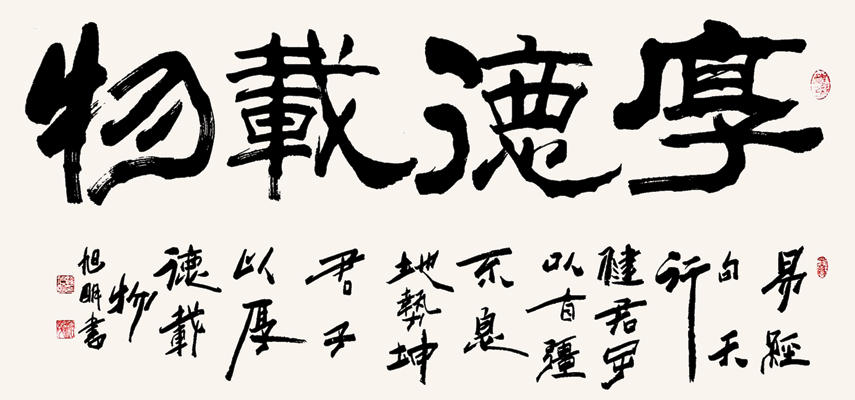 厚德載物
易經
句天
行
健君子
以自彊
不息
地勢坤
君子
以厚
德載
物
旭明書